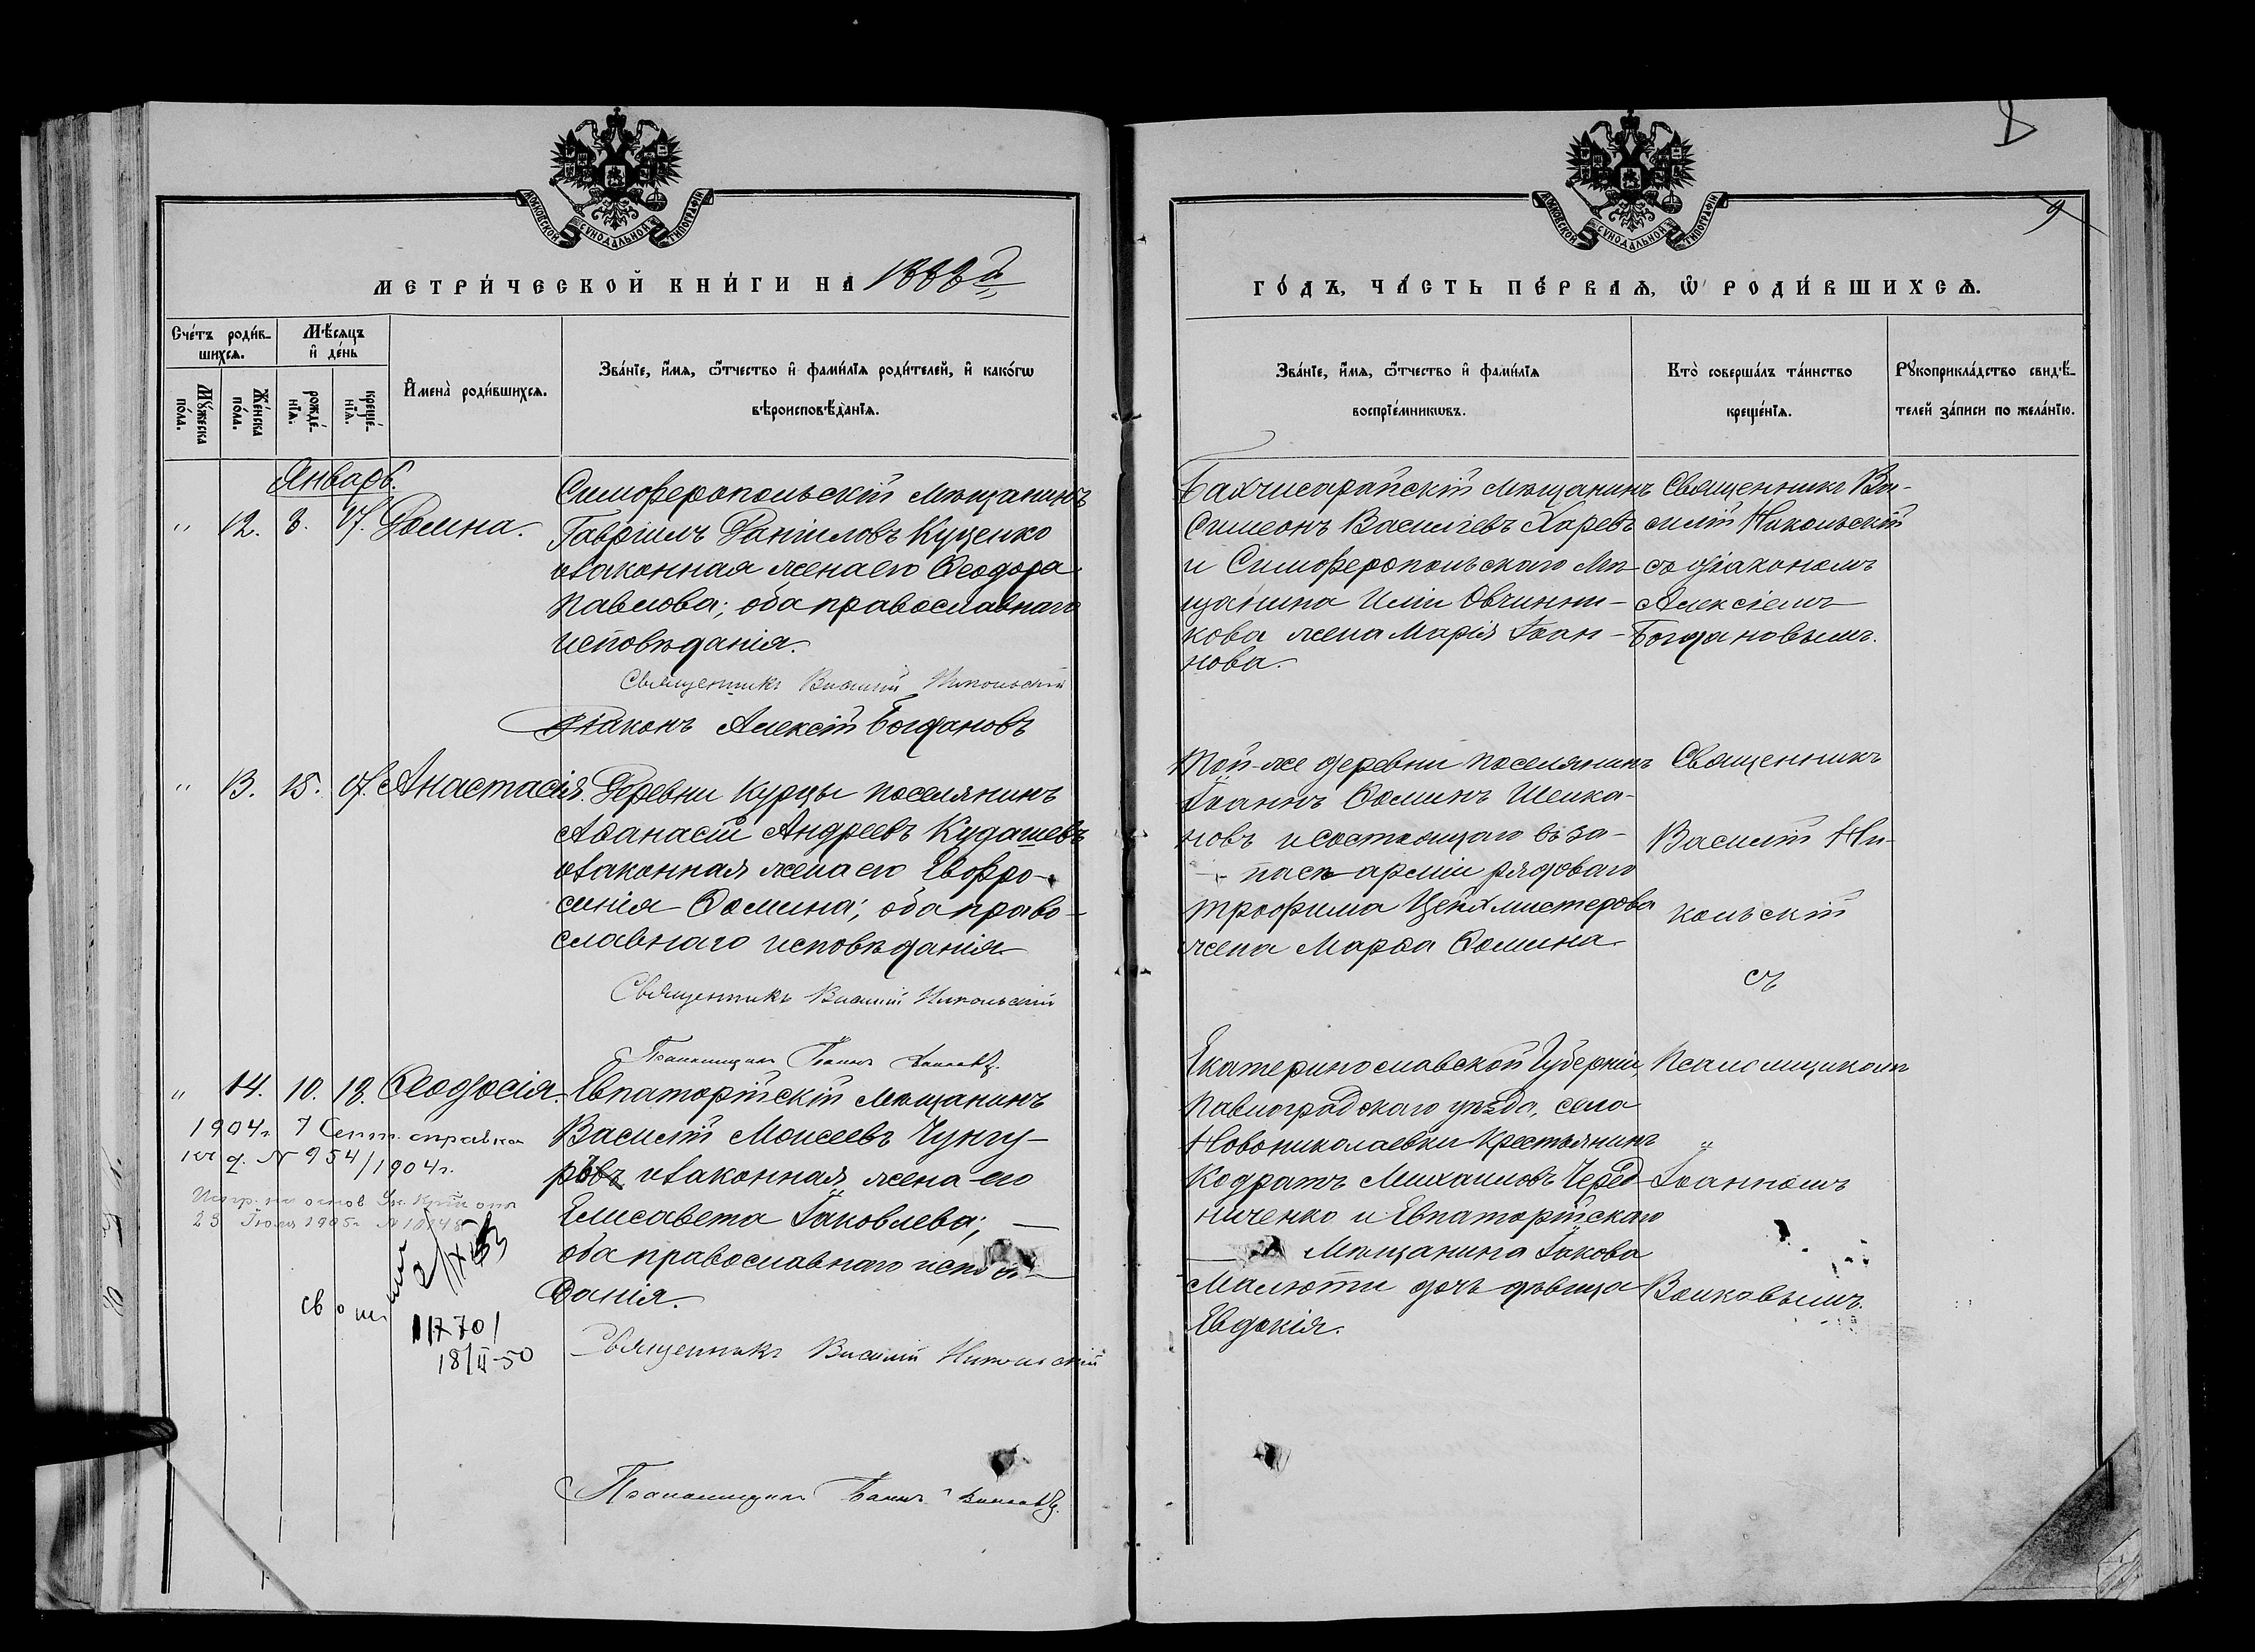 МОСКОВСКОЙ СѴНОДАЛЬНОЙ ТИПОГРАФІИ
МЕТРИ́ЧЕСКОЙ КНИ́ГИ НА 1888й
Сче́тъ роди́в-
шихсѧ.
Мꙋ́жеска
по́ла.
Же́нска
по́ла.
Мѣ́сѧцъ
и҆ де́нь
рожде́-
нїѧ.
креще́-
нїѧ.
И҆мена̀ роди́вшихсѧ.
Зва́нїе, и҆́мѧ, ѻ҆́тчество и҆ фами́лїѧ роди́телей, и҆ како́гѡ
вѣроисповѣ́данїѧ.
Январь.
" 12. 8. 17. Домна.
Симферопольскій мѣщанинъ
Гавріилъ Даніиловъ Куценко
и законная жена его Ѳеодора
Павлова; оба православнаго
исповѣданія.
Священникъ Василій Никольскій
Діаконъ Алексій Богдановъ
" 13. 15. 17. Анастасія.
Деревни Курцы поселянинъ
Аѳанасій Андреевъ Кудашевъ
и законная жена его Евфро-
синія Ѳомина; оба право-
славнаго исповѣданія.
Священникъ Василій Никольскій
Псаломщикъ Іоаннъ
" 14. 10. 19. Ѳеодосія.
Евпаторійскій мѣщанинъ
Василій Моисеевъ Чунгу-
ровъ и законная жена его
Елисавета Іаковлева;
оба православнаго исповѣ-
данія.
Священникъ Василій Никольскій
Псаломщикъ Іоаннъ
1904г. 7 Сент. справка
д. № 954/1904г.
Испр. на основ. Ук.
23 Іюля 1905г.
18/II-50
МОСКОВСКОЙ СѴНОДАЛЬНОЙ ТИПОГРАФІИ
9
ГО́ДЪ, ЧА́СТЬ ПЕ́РВАѦ, Ѡ҆ РОДИ́ВШИХСѦ.
Зва́нїе, и҆́мѧ, ѻ҆́тчество и҆ фами́лїѧ
воспрїе́мникѡвъ.
Кто̀ соверша́лъ та́инство
креще́нїѧ.
Рꙋкоприкла́дство свидѣ́-
телей за́писи по жела́нїю.
Бахчисарайскій мѣщанинъ
Симеонъ Василіевъ Харевъ
и Симферопольскаго мѣ-
щанина Иліи Овчинни-
кова жена Марія Іоан-
нова.
Священникъ Ва-
силій Никольскій
съ діакономъ
Алексіемъ
Богдановымъ.
Той-же деревни поселянинъ
Іоаннъ Ѳоминъ Шейка-
новъ и состоящаго въ за-
пасѣ арміи рядоваго
Трофима Цейхмистерова
жена Марѳа Ѳомина.
Священникъ
Василій Ни-
кольскій
съ
Екатеринославской Губерніи,
Павлоградскаго уѣзда, села
Новониколаевки крестьянинъ
Кодратъ Михаиловъ Черед-
ниченко и Евпаторійскаго
мѣщанина Іакова
Малюти дочь дѣвица
Евдокія.
Псаломщикомъ
"
Іоанномъ
Волковымъ.